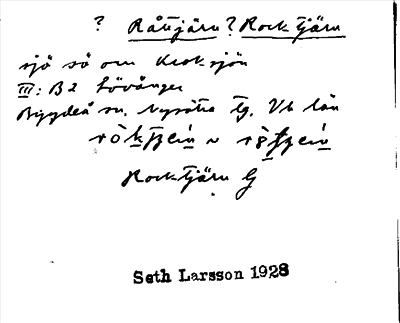 ? Råtjärn? Rocktjärn
sjö sö om Kroksjön
III: B2 Lövånger
Bygdeå sn. Nysätra tg. Vb län
Rocktjärn G
Seth Larsson 1928